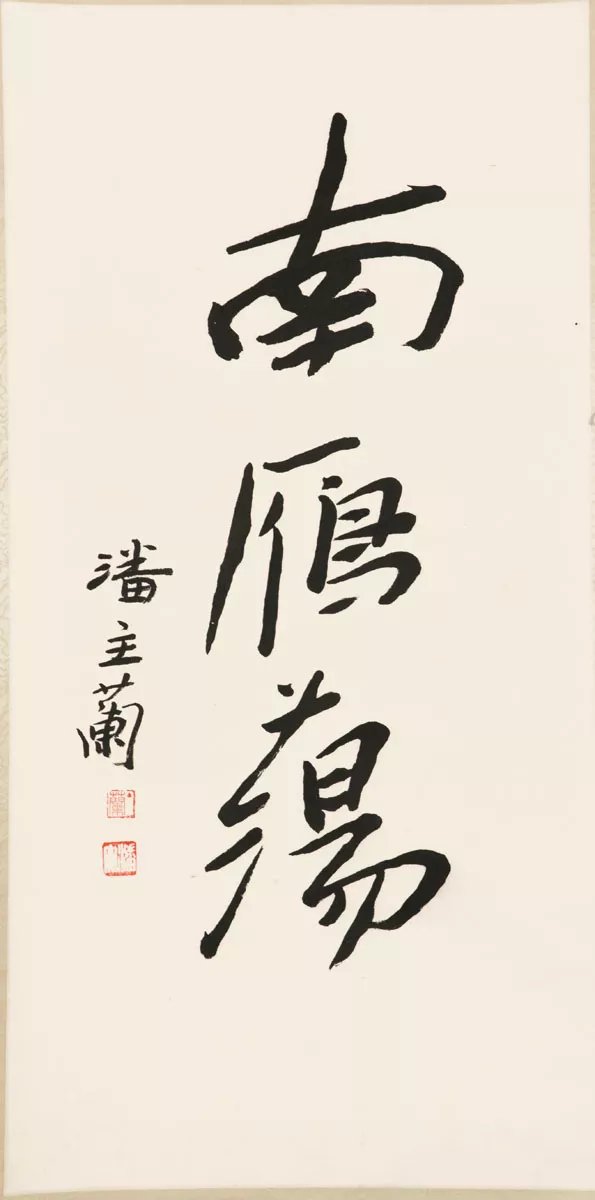 南雁蕩
潘主蘭